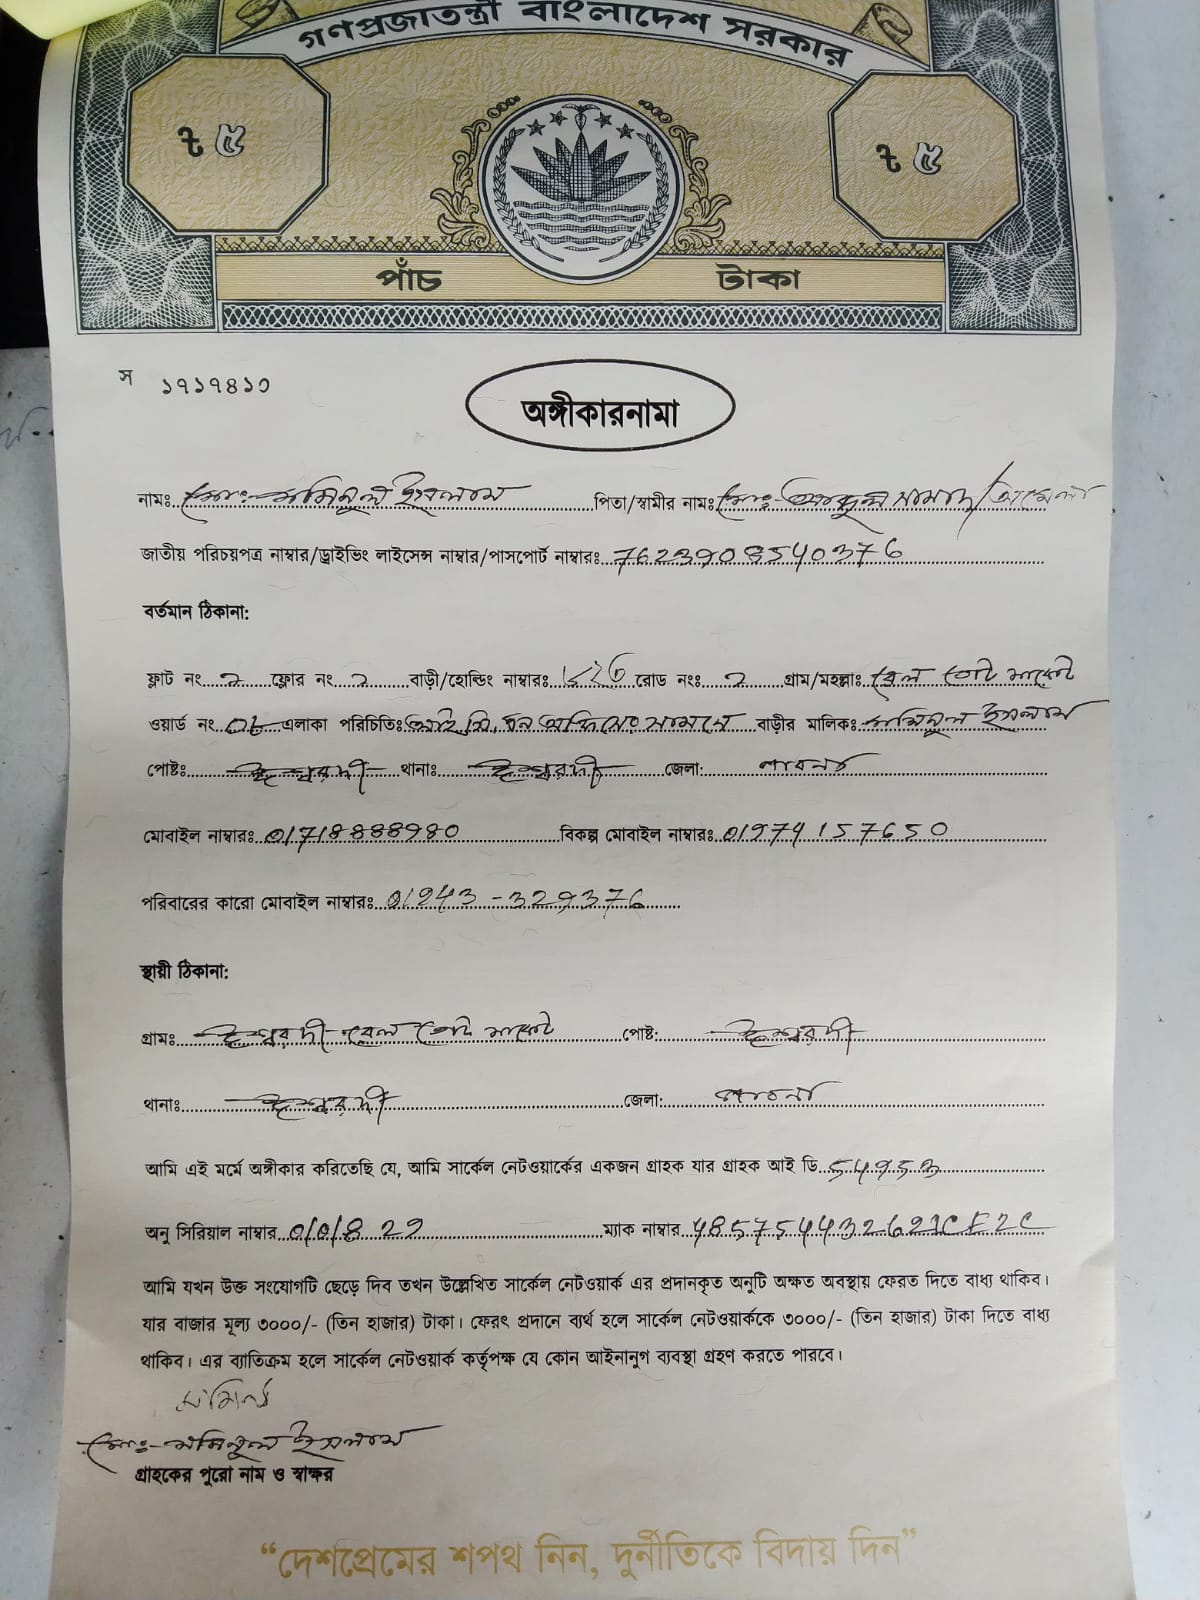 গণপ্রজাতন্ত্রী বাংলাদেশ সরকার
৳ ৫ ৳ ৫
পাঁচ টাকা
স ১৭১৭৪১০
অঙ্গীকারনামা
নামঃ মোঃ- মমিনুল ইসলাম পিতা/স্বামীর নামঃ মোঃ- সামাদ
জাতীয় পরিচয়পত্র নাম্বার/ড্রাইভিং লাইসেন্স নাম্বার/পাসপোর্ট নাম্বারঃ
বর্তমান ঠিকানা:
ফ্লাট নং ২ ফ্লোর নং ২ বাড়ী/হোল্ডিং নাম্বারঃ রোড নংঃ ২ গ্রাম/মহল্লাঃ রেল গেট
ওয়ার্ড নং এলাকা পরিচিতিঃ সামনে বাড়ীর মালিকঃ মমিনুল ইসলাম
পোষ্টঃ ঈশ্বরদী থানাঃ ঈশ্বরদী জেলা: পাবনা
মোবাইল নাম্বারঃ 01718888980 বিকল্প মোবাইল নাম্বারঃ 01974157650
পরিবারের কারো মোবাইল নাম্বারঃ
স্থায়ী ঠিকানা:
গ্রামঃ ঈশ্বরদী রেল গেট পোষ্ট: ঈশ্বরদী
থানাঃ ঈশ্বরদী জেলা: পাবনা
আমি এই মর্মে অঙ্গীকার করিতেছি যে, আমি সার্কেল নেটওয়ার্কের একজন গ্রাহক যার গ্রাহক আই ডি
অনু সিরিয়াল নাম্বার ম্যাক নাম্বার
আমি যখন উক্ত সংযোগটি ছেড়ে দিব তখন উল্লেখিত সার্কেল নেটওয়ার্ক এর প্রদানকৃত অনুটি অক্ষত অবস্থায় ফেরত দিতে বাধ্য থাকিব।
যার বাজার মূল্য ৩০০০/- (তিন হাজার) টাকা। ফেরৎ প্রদানে ব্যর্থ হলে সার্কেল নেটওয়ার্ককে ৩০০০/- (তিন হাজার) টাকা দিতে বাধ্য
থাকিব। এর ব্যতিক্রম হলে সার্কেল নেটওয়ার্ক কর্তৃপক্ষ যে কোন আইনানুগ ব্যবস্থা গ্রহণ করতে পারবে।
মোঃ- মমিনুল ইসলাম
গ্রাহকের পুরো নাম ও স্বাক্ষর
“দেশপ্রেমের শপথ নিন, দুর্নীতিকে বিদায় দিন”